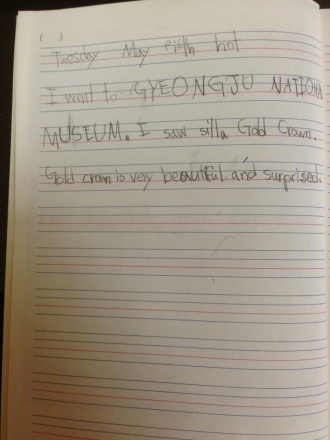 ( )
Tuesday May fifth hot
I want to GYEONGJU NATIONAL
MUSEUM. I saw silla Gold Crown.
Gold crown is very beautiful. and surprised.